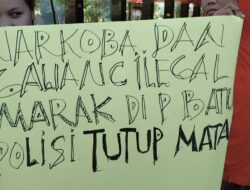 NARKOBA DAN
GAWANG ILEGAL
MARAK DI P BATU
POLISI TUTUP MATA